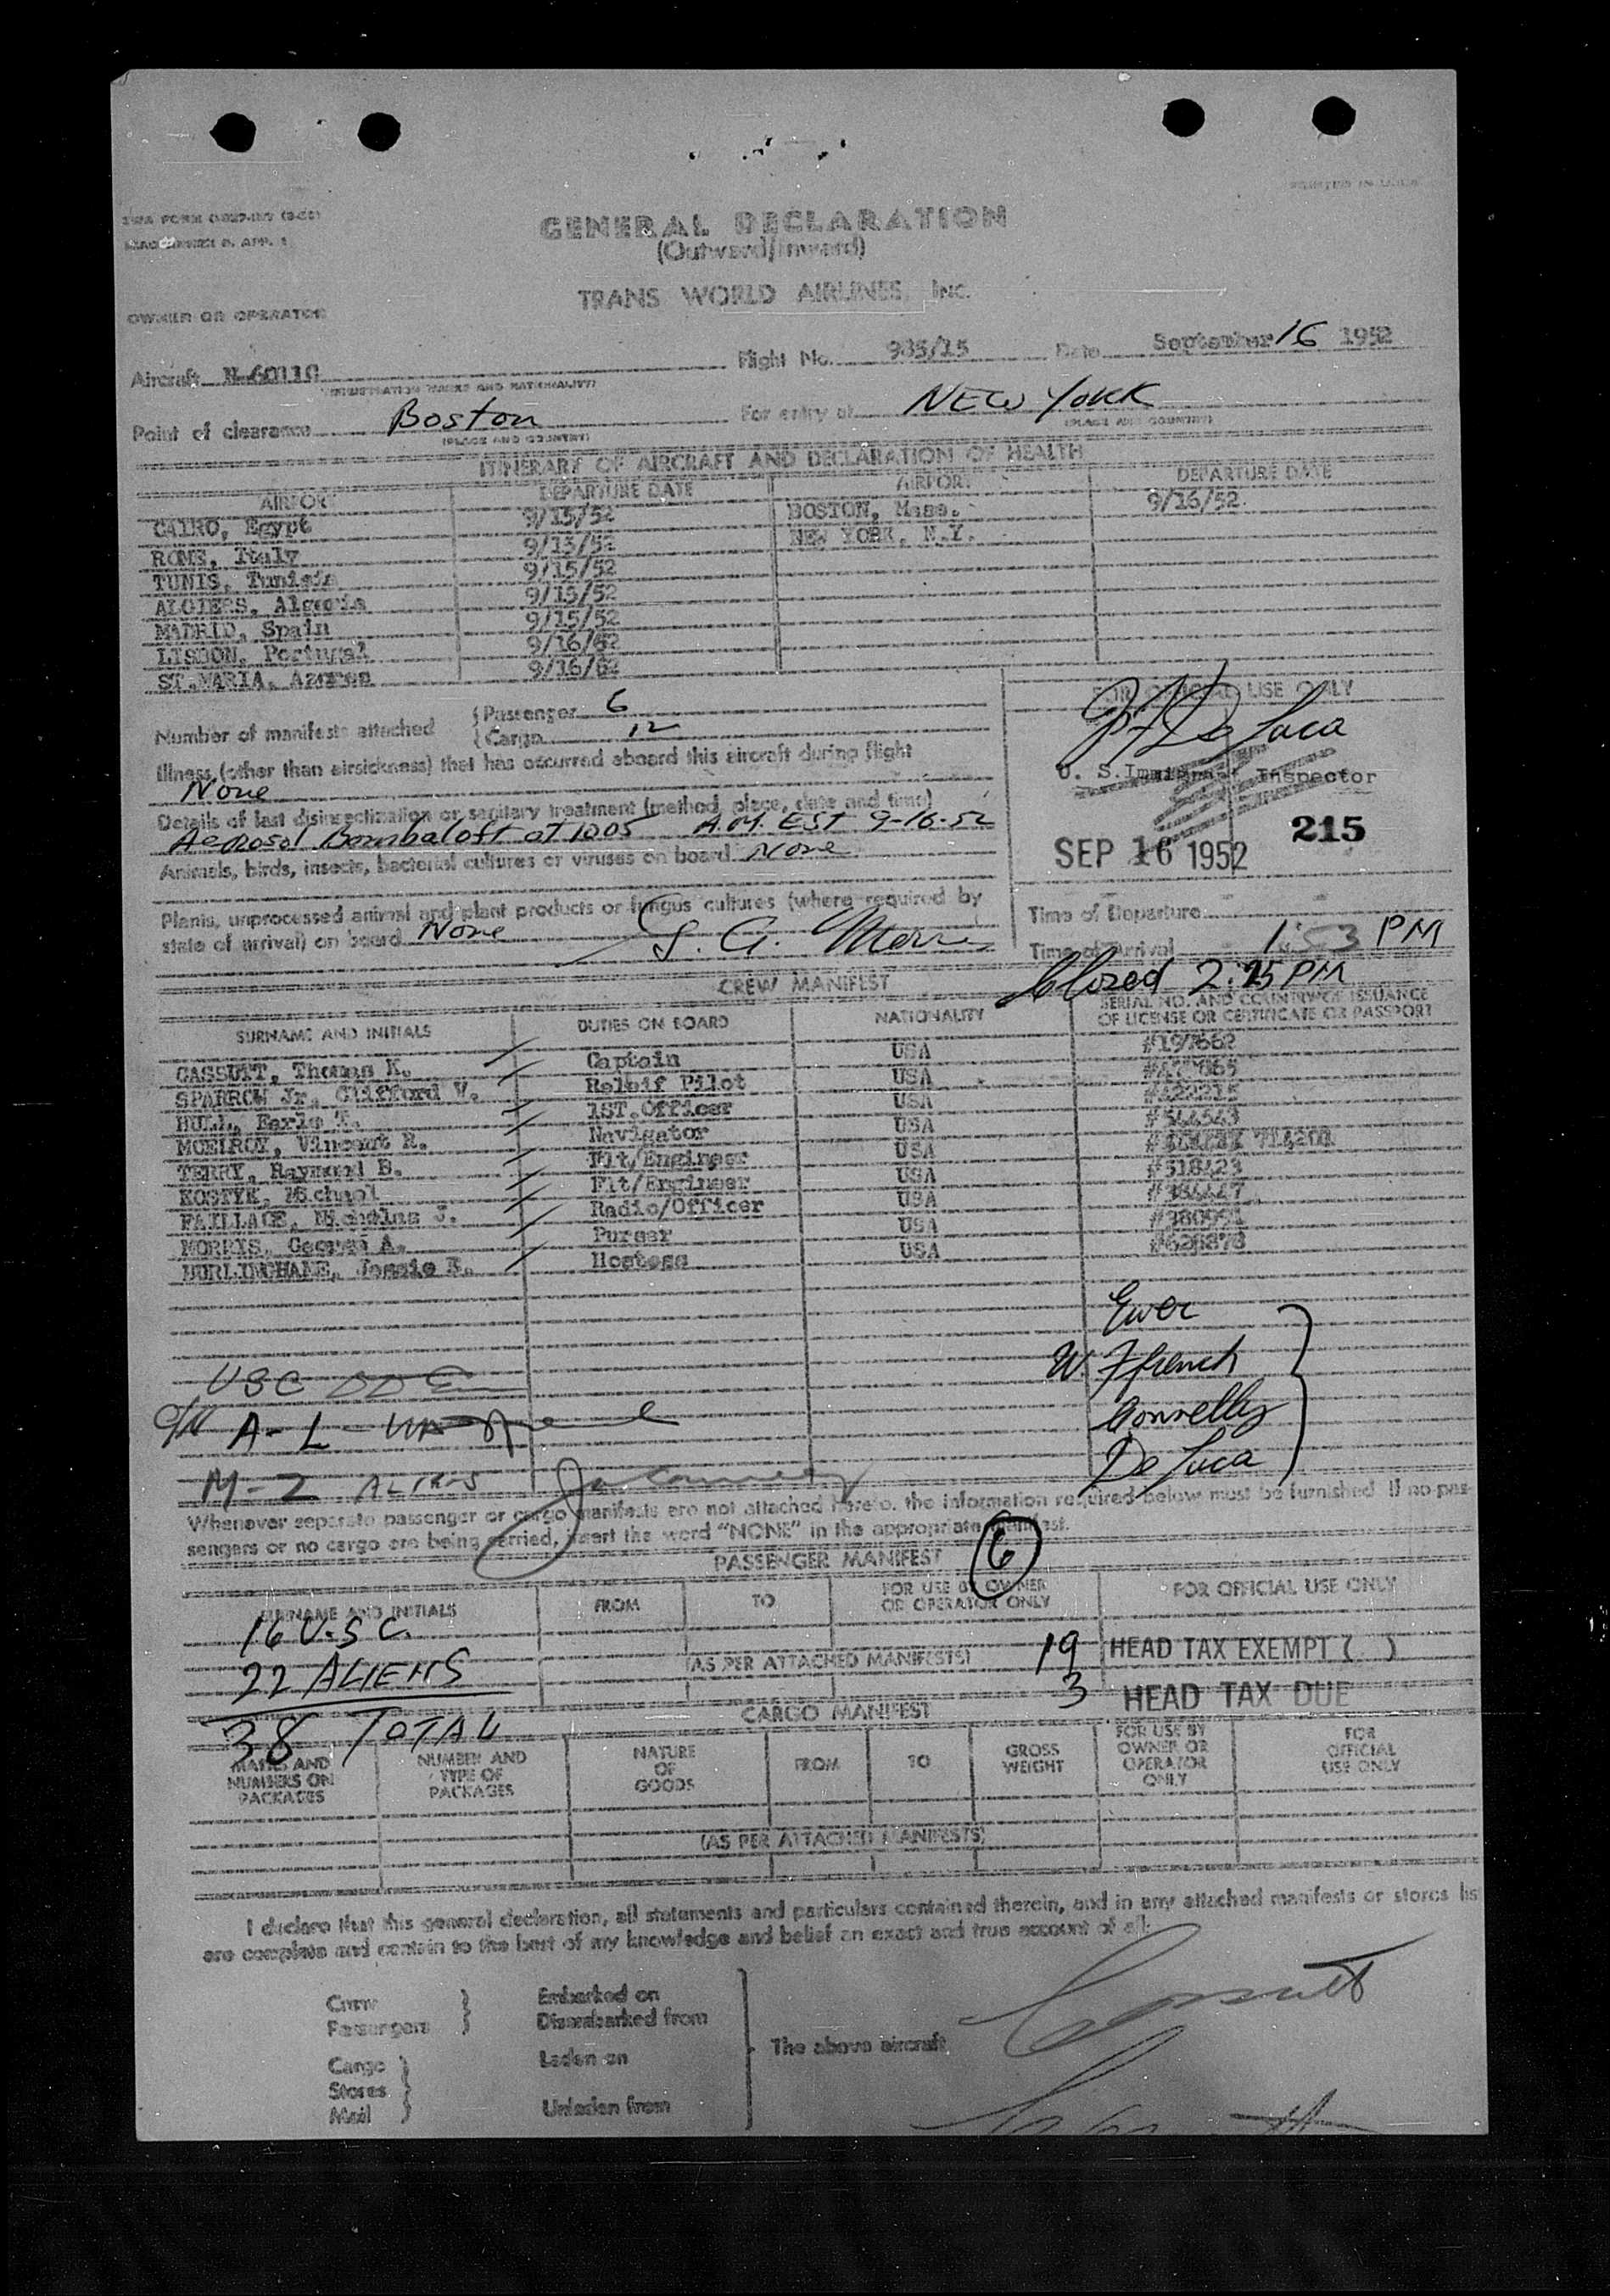 GENERAL DECLARATION
(Outward/Inward)
TRANS WORLD AIRLINES, INC.
OWNER OR OPERATOR
Aircraft Flight No. 935/15 Date September 16 1952
(REGISTRATION MARKS AND NATIONALITY)
Point of clearance Boston For entry at NEW YORK
(PLACE AND COUNTRY) (PLACE AND COUNTRY)
ITINERARY OF AIRCRAFT AND DECLARATION OF HEALTH
AIRPORT DEPARTURE DATE AIRPORT DEPARTURE DATE
CAIRO, Egypt 9/15/52 BOSTON, Mass. 9/16/52
ROME, Italy 9/15/52 NEW YORK, N.Y.
TUNIS, Tunisia 9/15/52
ALGIERS, Algeria 9/15/52
MADRID, Spain 9/15/52
LISBON, Portugal 9/16/52
ST.MARIA, Azores 9/16/52
FOR OFFICIAL USE ONLY
Number of manifests attached { Passenger 6
{ Cargo 12
De Luca
U. S. Immigrant Inspector
SEP 16 1952 215
Illness (other than airsickness) that has occurred aboard this aircraft during flight
None
Details of last disinsectization or sanitary treatment (method, place, date and time)
Aerosol Bomb aloft at 1005 A.M. EST 9-16-52
Animals, birds, insects, bacterial cultures or viruses on board None
Plants, unprocessed animal and plant products or fungus cultures (where required by
state of arrival) on board None
Time of Departure
Time of Arrival 1:53 PM
Closed 2:25 PM
CREW MANIFEST
SURNAME AND INITIALS DUTIES ON BOARD NATIONALITY SERIAL NO. AND COUNTRY OF ISSUANCE
OF LICENSE OR CERTIFICATE OR PASSPORT
CASSUTT, Thomas K. Captain USA
SPARROW Jr, Clifford V. Releif Pilot USA
HULL, Earle 1ST.Officer USA
MCELROY, Vincent R. Navigator USA #544543
TERRY, Raymond B. Flt/Engineer USA
KOSTYK, Michael Flt/Engineer USA #518423
FAILLACE, Nicholas J. Radio/Officer USA
MORRIS, George A. Purser USA
BURLINGHAME, Jessie Hostess USA
Ewer
W. Ffrench
Connelly
De Luca
USC
A-L
M-2 ALIENS
Whenever separate passenger or cargo manifests are not attached hereto, the information required below must be furnished. If no pas-
sengers or no cargo are being carried, insert the word "NONE" in the appropriate manifest.
PASSENGER MANIFEST 6
SURNAME AND INITIALS FROM TO FOR USE BY OWNER
OR OPERATOR ONLY FOR OFFICIAL USE ONLY
16 U.S C.
22 ALIENS (AS PER ATTACHED MANIFESTS) 19 HEAD TAX EXEMPT ( )
3 HEAD TAX DUE
38 TOTAL
CARGO MANIFEST
MARKS AND
NUMBERS ON
PACKAGES NUMBER AND
TYPE OF
PACKAGES NATURE
OF
GOODS FROM TO GROSS
WEIGHT FOR USE BY
OWNER OR
OPERATOR
ONLY FOR
OFFICIAL
USE ONLY
(AS PER ATTACHED MANIFESTS)
I declare that this general declaration, all statements and particulars contained therein, and in any attached manifests or stores lis
are complete and contain to the best of my knowledge and belief an exact and true account of all:
Crew
Passengers } Embarked on
Disembarked from
Cargo
Stores
Mail } Laden on
Unladen from
The above aircraft
Cassutt